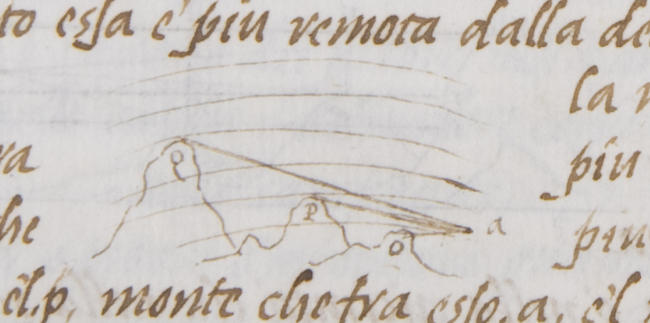 to essa e' piu remota dalla de
la
ra
piu
he
piu
q
p
o
a
el.p. monte che fra esso.a. el